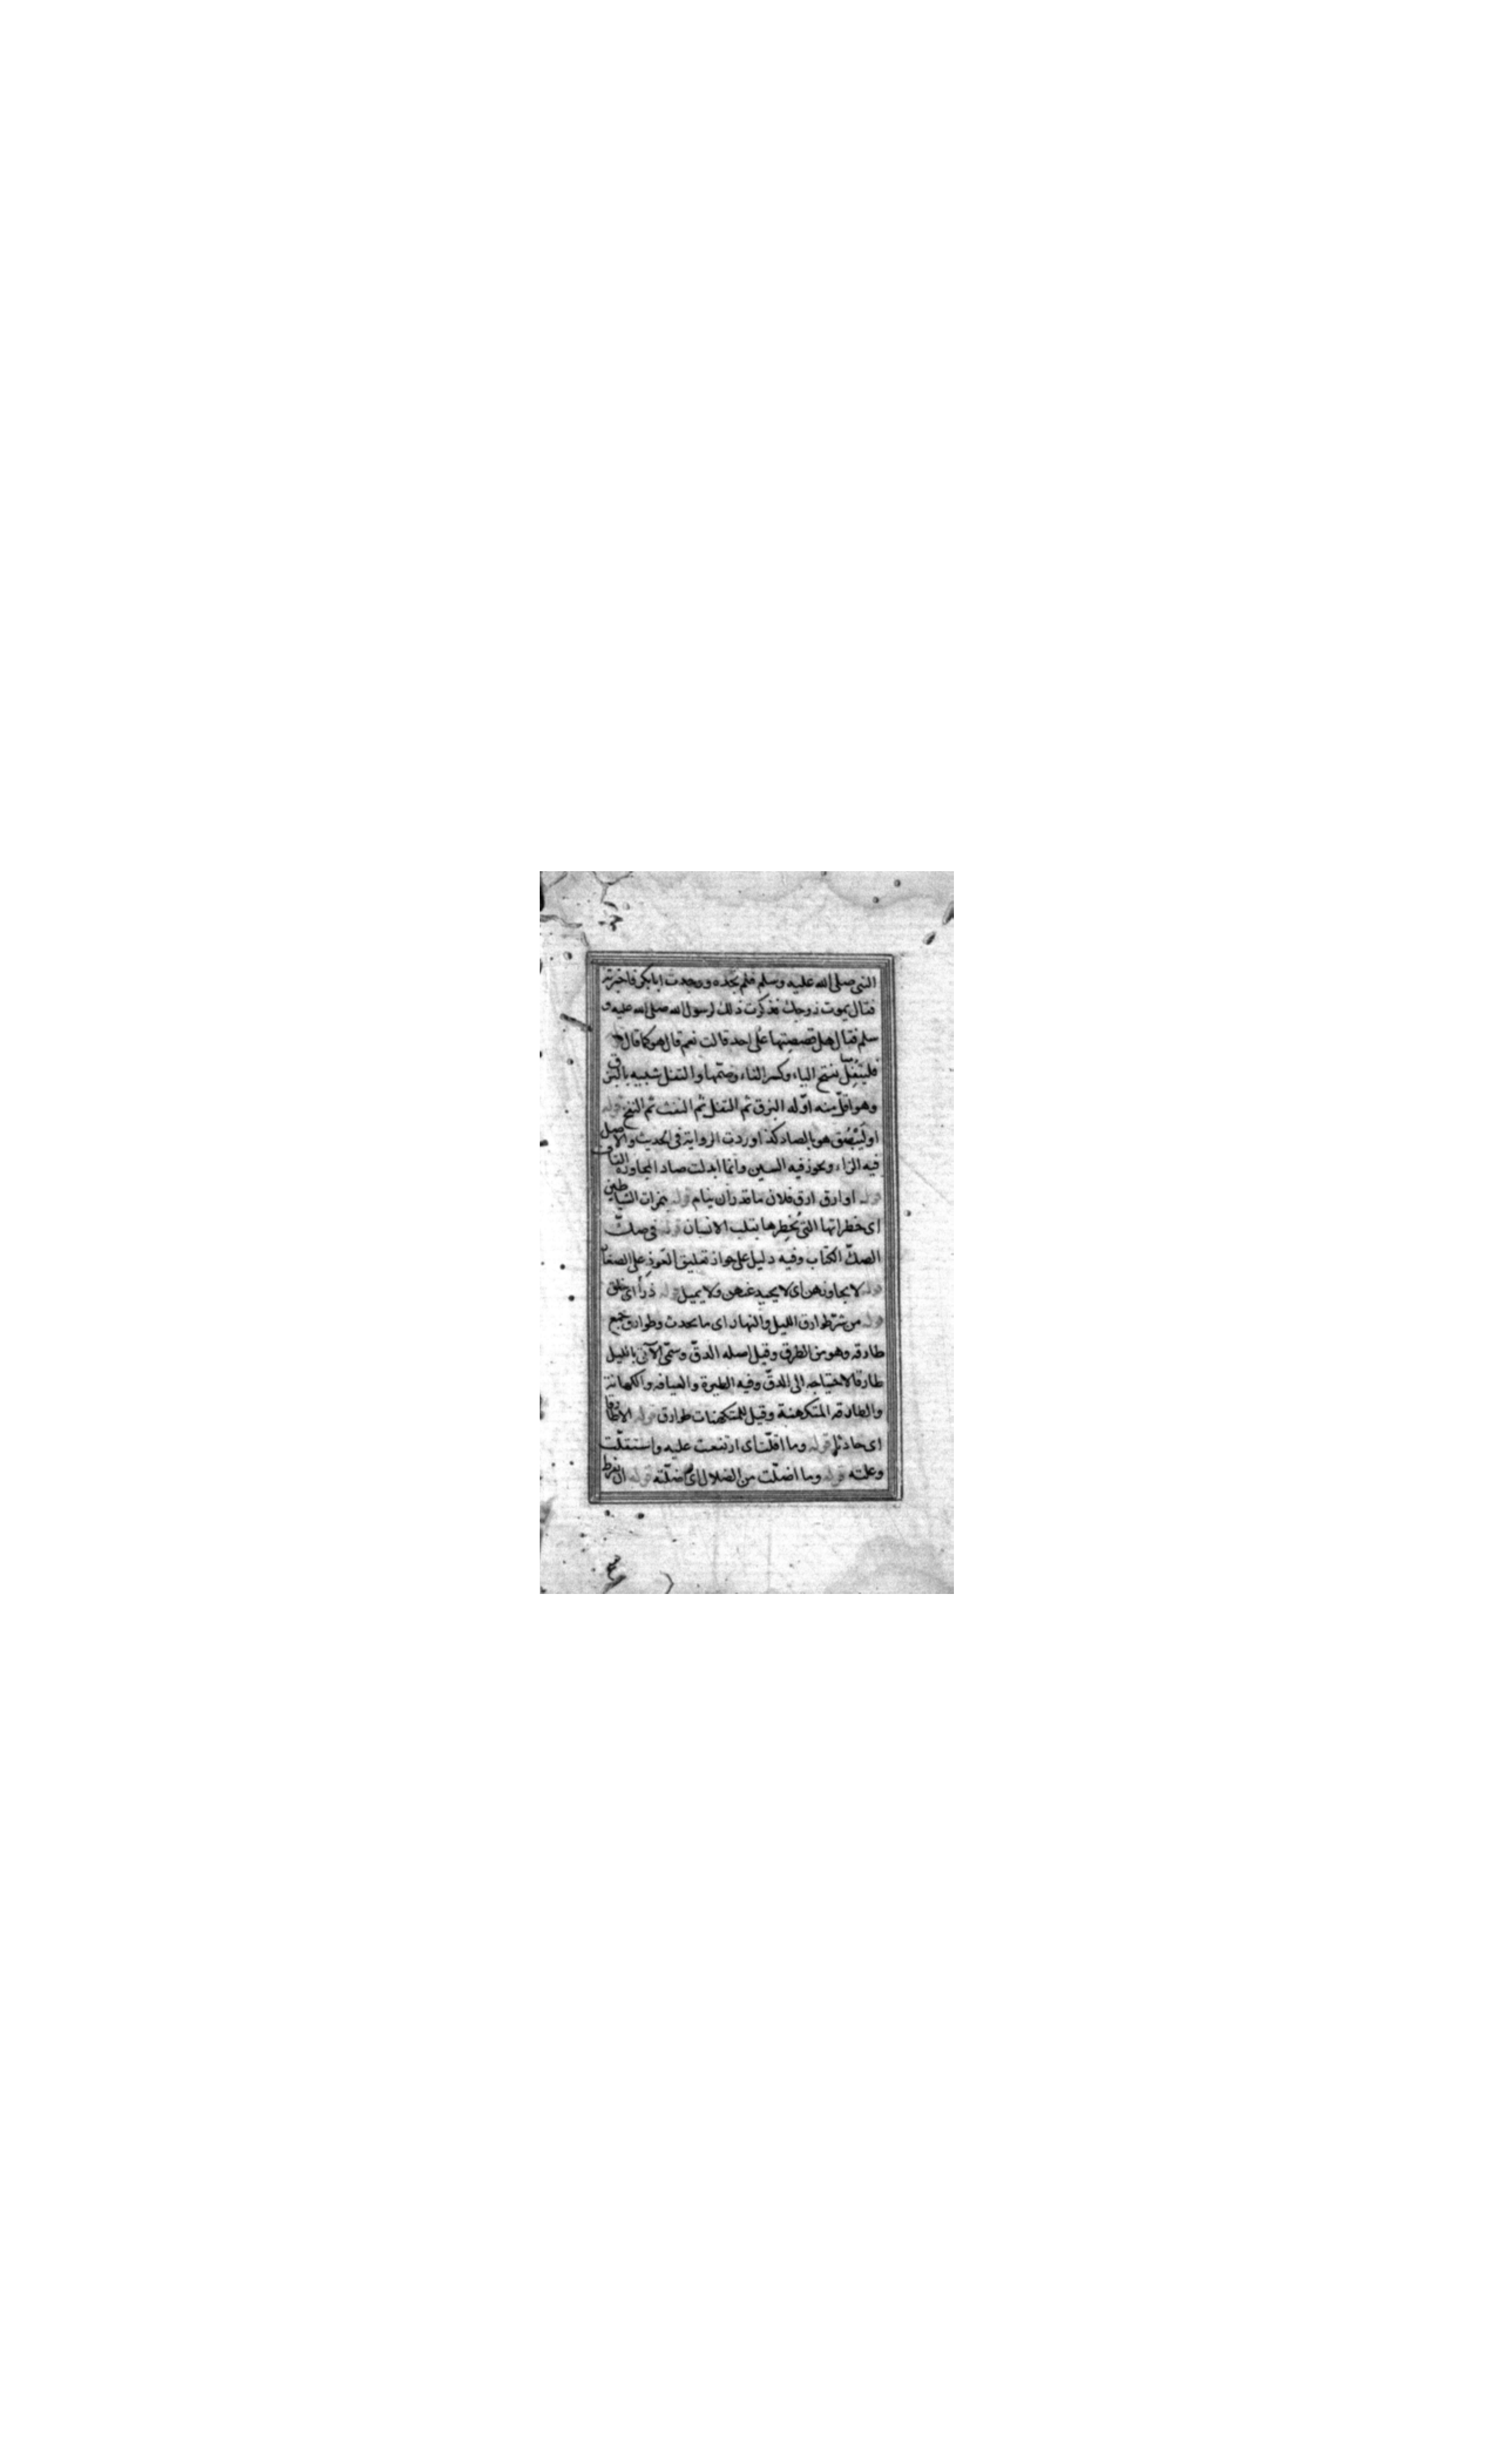 النبى صلى الله عليه وسلم فلم تجده ووجدت ابا بكر فاخبرته
فقال يموت زوجك فذكرت ذلك لرسول الله صلى الله عليه و
سلم فقال هل قصصتها على احد قالت نعم قال هو كما قال
فليتفل بفتح الياء وكسر الفاء وضمها والتفل شبيه بالبزق
وهو اقل منه اوله البزق ثم التفل ثم النفث ثم النفخ قوله
او ليبصق هو بالصاد كذا وردت الرواية فى الحديث والاصل
فيه الزاء ويجوز فيه السين وانما ابدلت صادا لمجاورة القاف
قوله او ارق ارق فلان ماقدر ان ينام قوله همزات الشياطين
اى خطراتها التى تخطرها بقلب الانسان قوله فى صك
الصك الكتاب وفيه دليل على جواز تعليق التعوذ على الصغار
قوله لا يجاوزهن اى لا يحيد عنهن ولا يميل قوله ذرأ اى خلق
قوله من شر طوارق الليل والنهار اى ما يحدث وطوارق جمع
طارقه وهو من الطرق وقيل اصله الدق وسمى الآتى بالليل
طارقا لاحتياجه الى الدق وفيه الطيرة والعيافه والكهانة
والطارقه المتكهنة وقيل للمتكهنات طوارق قوله الا طارقا
اى حادثا قوله وما اقلت اى ارتفعت عليه واستقلت
وعلته قوله وما اضلت من الضلال اى اضلته قوله ان يفرط